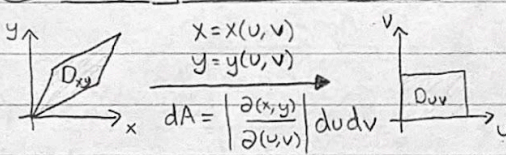 y
D_xy
x
x = x(u,v)
y = y(u,v)
dA = |∂(x,y)/∂(u,v)| du dv
v
D_uv
u